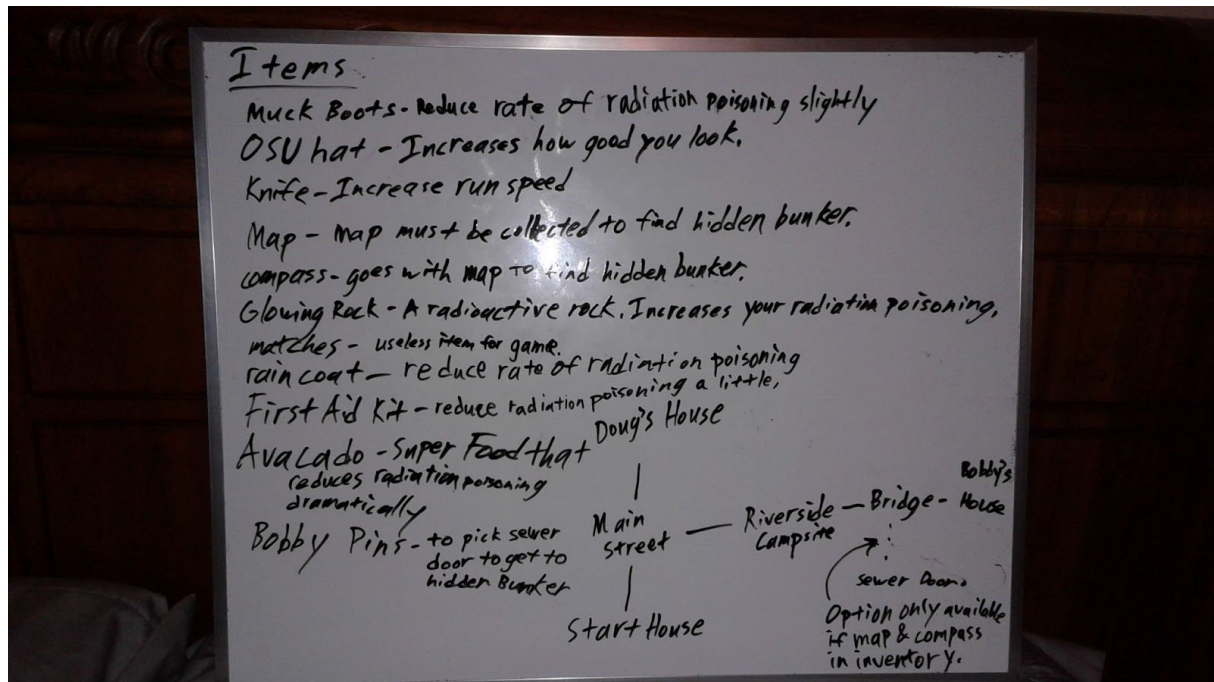 Items
Muck Boots - Reduce rate of radiation poisoning slightly
OSU hat - Increases how good you look.
Knife - Increase run speed
Map - map must be collected to find hidden bunker.
compass - goes with map to find hidden bunker.
Glowing Rock - A radioactive rock. Increases your radiation poisoning.
matches - useless item for game.
rain coat - reduce rate of radiation poisoning
First Aid Kit - reduce radiation poisoning a little.
Avacado - Super Food that
reduces radiation poisoning
dramatically
Bobby Pins - to pick sewer
door to get to
hidden Bunker
Doug's House
Main
street
Start House
Riverside
Campsite
Bridge
Bobby's
House
sewer Door.
Option only available
if map & compass
in inventory.